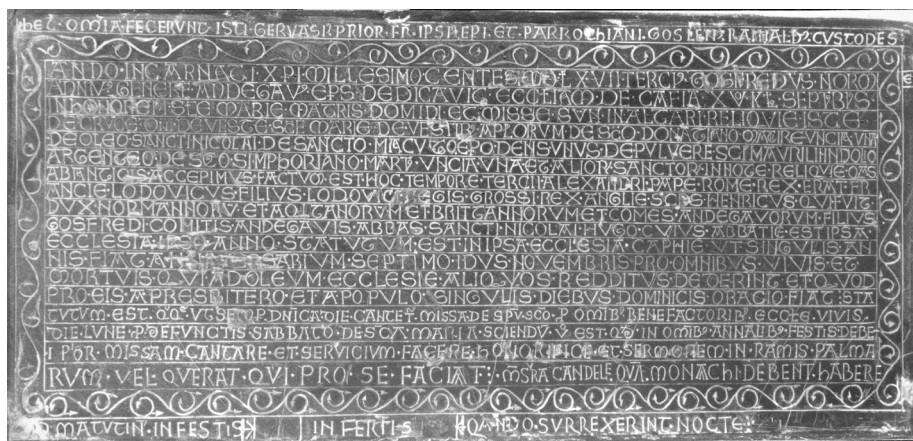 OMIA·FECERVNT·ISTI·GERVAS PRIOR·FR·IPS·REPI·ET·PARROCHIANI·GOSLEN·RAINALD·CVSTODES
ANDO·INCARNATI·XPI·MILLESIMO·CENTESIMO·TERCI GOSFREDVS·NORM
ANNVS·GENERE·ANDEGAV·EPS·DEDICAVIT·ECCLESIAM·DE· XV·KL·SEPTBIS
IN·HONOREM·SCE·MARIE·MATRIS·DOMINI·ET·MISSE·SVNT·IN·ALTARI·RELIQVIE·ISTE
DE SCE·MARIE·DE·VESTIB·APLORVM·DE·SCO·DONATIANO VNCIA·VNA
DE·OLEO·SANCTI·NICOLAI·DE·SANCTO·DENS·VNVS·DE·PVLVERE·SCI·MAVRILII·IN·DOLIO
ARGENTEO·DE·SCO·SIMPHORIANO·MART·VNCIA·VNA·ET·ALIOR·SANCTOR RELIQVIE·QAS
AB·ANTIQIS·ACCEPIMVS·FACTV EST·HOC·TEMPORE·TERCII·ALEXANDRI·PAPE·ROME·REX·ERAT·FR
ANCIE·LODOVICVS·FILIVS·LODOVICI·REGIS·GROSSI·REX·ANGLIE·HENRICVS·QVI·FVIT
DVX·NORMANNORV·ET·AQITANORVM·ET·BRITANNORVM·ET·COMES·ANDEGAVORVM·FILIVS
GOSFREDI·COMITIS·ANDEGAVIS·ABBAS·SANCTI·NICOLAI·HVGO·CVIVS·ABBATIE·EST·IPSA
ECCLESIA·IPSO·ANNO·STATVTVM·EST·IN·IPSA·ECCLESIA·CAPHIE·VT·SINGVLIS·AN
NIS·FIAT·A SEPTIMO·IDVS·NOVEMBRIS·PRO·OMNIBVS·VIVIS·ET
MORTVIS·QVI·AD·OLEVM·ECCLESIE·ALIQVOS·REDDITVS·DEDERINT·ET·QVOD
PRO·EIS·A·PRESBITERO·ET·A·POPVLO·SINGVLIS·DIEBVS·DOMINICIS·ORATIO·FIAT·STA
TVTVM·EST·QOQE·VT·SEMP·DNICA·DIE·CANTET·MISSA·DE·SPV·SCO·P·OMIB·BENEFACTORIB·ECCLE·VIVIS·
DIE·LVNE·P·DEFVNCTIS·SABBATO·DE·SCA·MARIA·SCIENDV·EST·QD·IN·OMIB·ANNALIB·FESTIS·DEBE
T·PIOR·MISSAM·CANTARE·ET·SERVICIVM·FACERE·HONORIFICE·ET·SERMONEM·IN·RAMIS·PALMA
RVM·VEL·QVERAT·QVI·PRO·SE·FACIAT: CANDELE·QVA·MONACHI·DEBENT·HABERE
MATVTIN·INFESTIS IN FERTIS QANDO·SVRREXERINT·NOCTE: